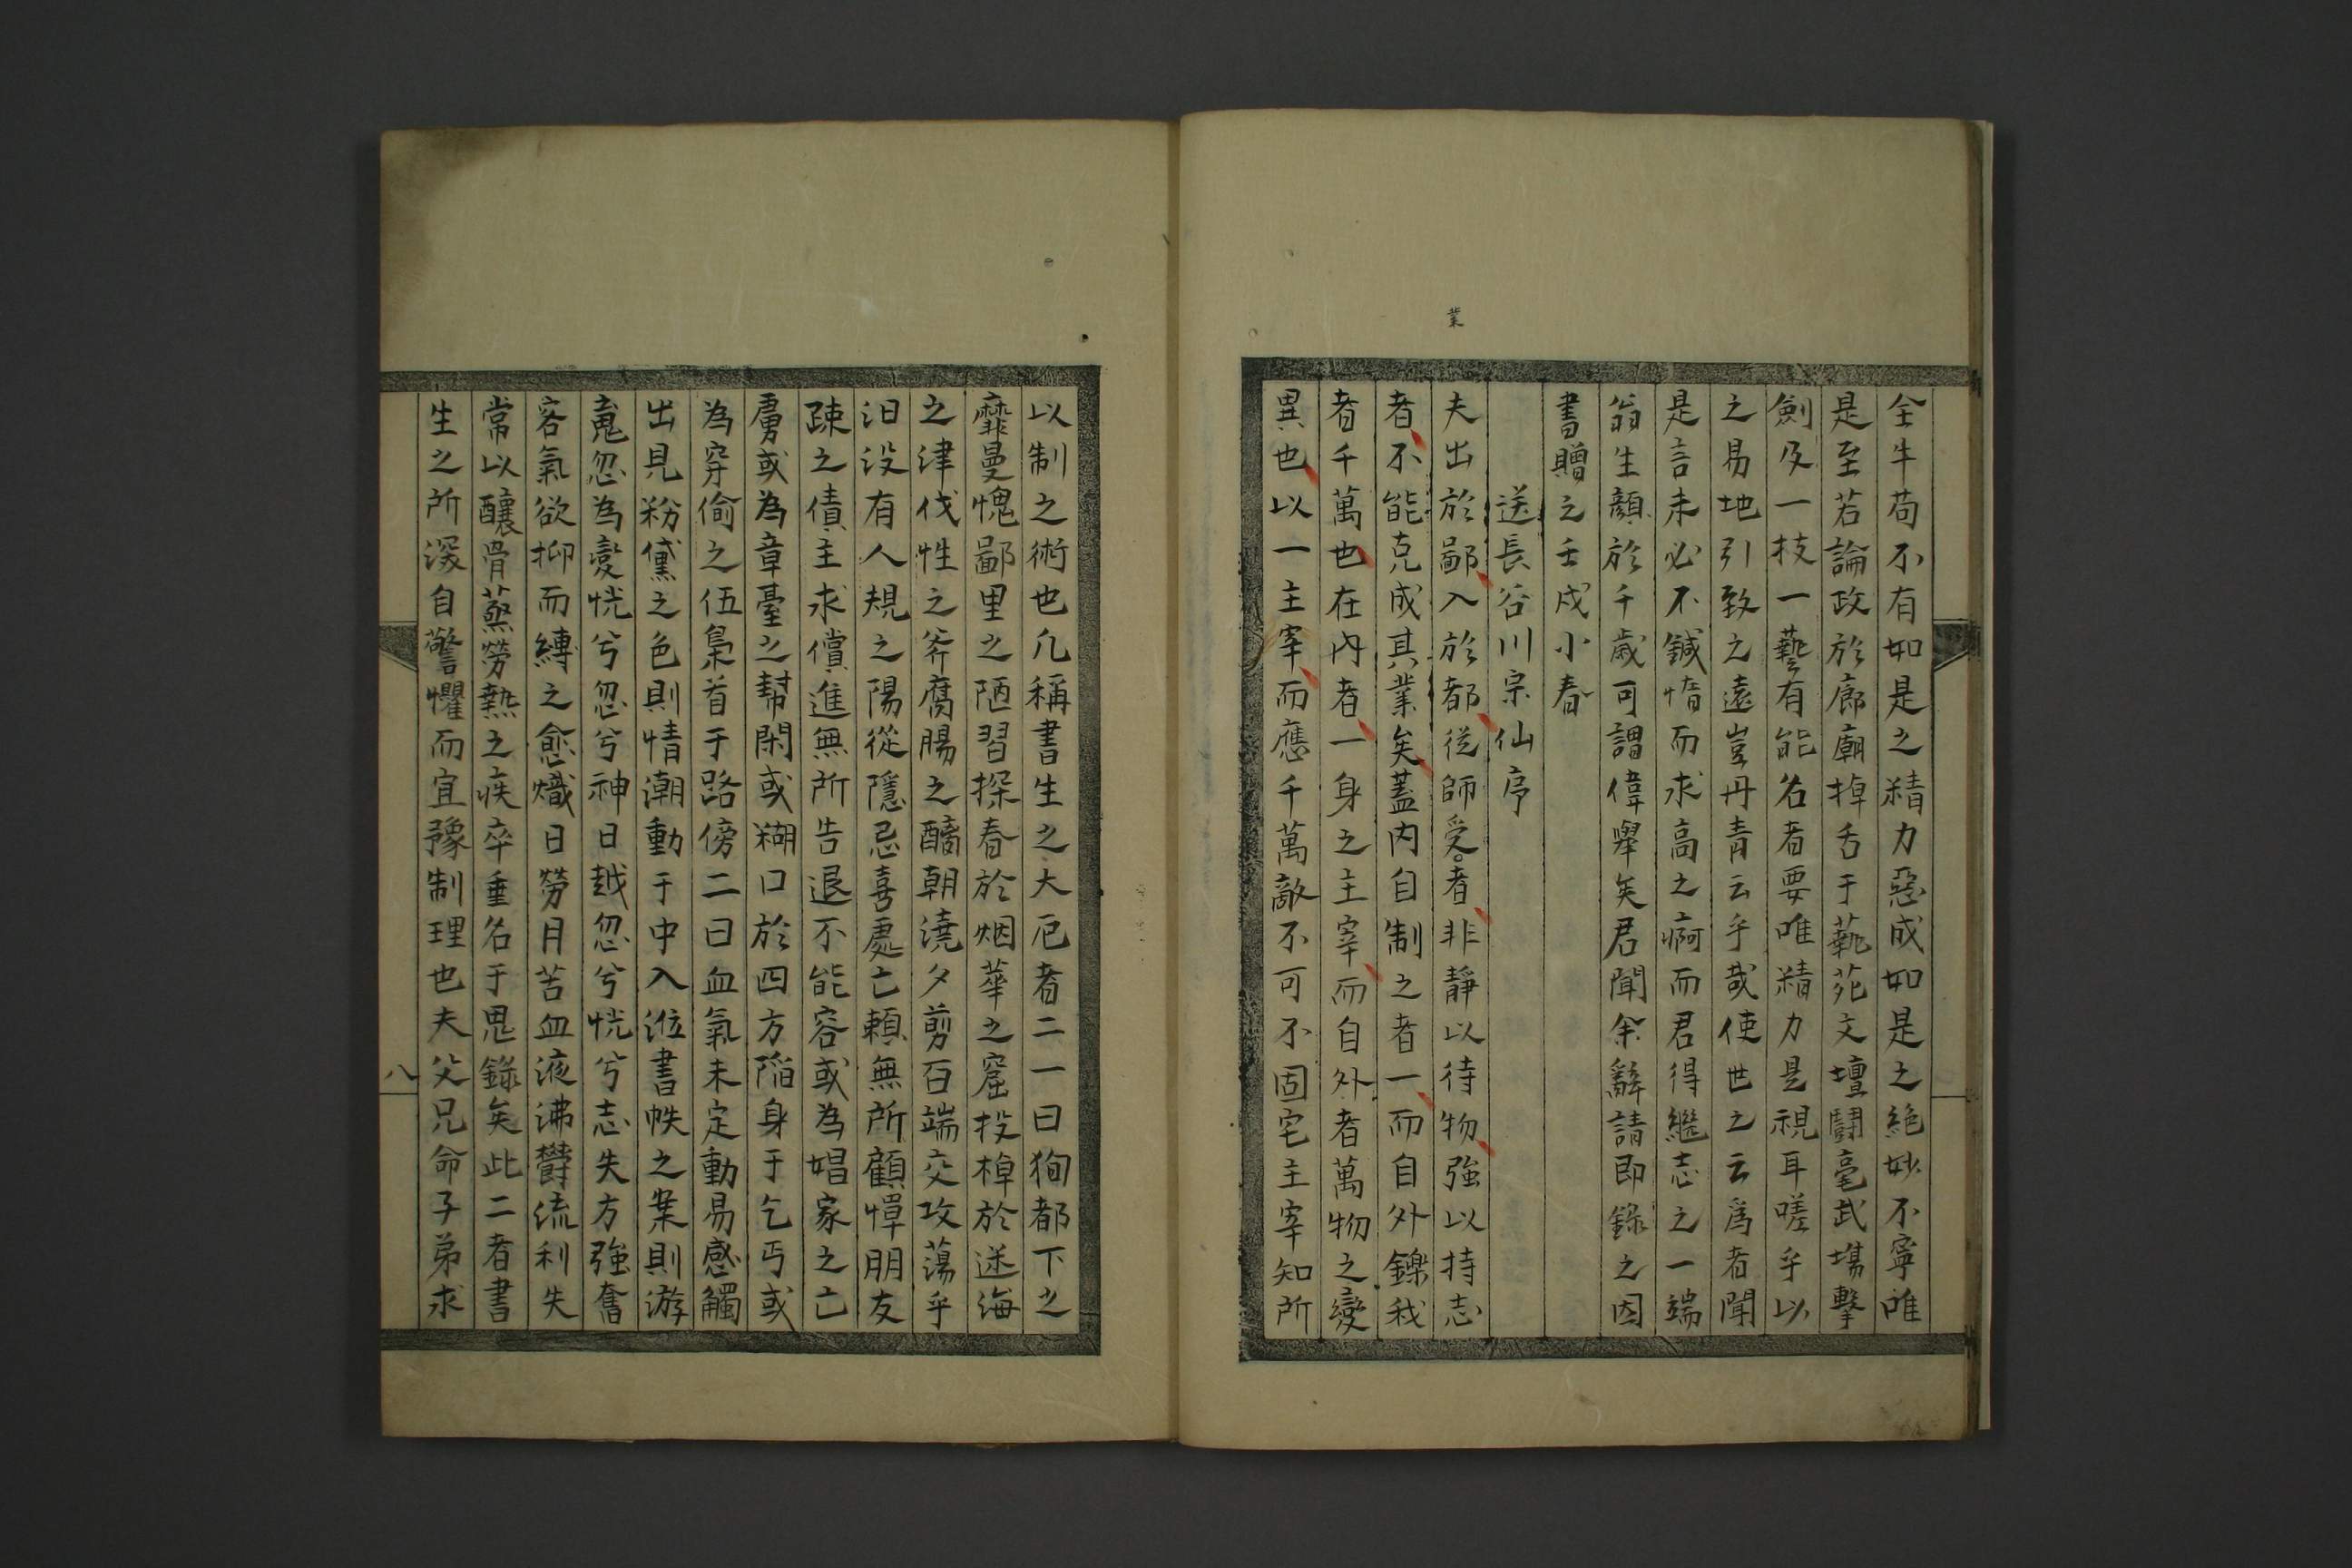 業
全牛苟不有如是之精力惡成如是之絶妙不寧唯
是至若論政於廊廟掉舌于藝苑文壇鬪毫武場擊
劍及一技一藝有能名者要唯精力是視耳嗟乎以
之易地引致之遠豈丹青云乎哉使世之云爲者聞
是言未必不鍼惰而求高之痾而君得繼志之一端
翁生顏於千歲可謂偉舉矣君聞余辭請即錄之因
書贈之壬戌小春
送長谷川宗仙序
夫出於鄙入於都從師受者非靜以待物強以持志
者不能克成其業矣蓋内自制之者一而自外鑠我
者千萬也在內者一身之主宰而自外者萬物之變
異也以一主宰而應千萬敵不可不固宅主宰知所
以制之術也凡稱書生之大厄者二一曰狥都下之
靡曼愧鄙里之陋習探春於烟華之窟投棹於迷海
之津伐性之斧腐腸之醨朝澆夕剪百端交攻蕩乎
汨没有人規之陽從隱忌喜處亡賴無所顧憚朋友
疎之債主求償進無所告退不能容或為娼家之亡
虜或為章臺之幇閑或糊口於四方陷身于乞丐或
為穿偷之伍梟首于路傍二曰血氣未定動易感觸
出見粉黛之色則情潮動于中入涖書帙之業則游
蒐忽為變恍兮忽兮神日越忽兮恍兮志失方強奮
客氣欲抑而縛之愈熾日勞月苦血液沸欝流利失
常以釀骨蒸勞熱之疾卒垂名于鬼錄矣此二者書
生之所深自警懼而宜豫制理也夫父兄命子弟求
八